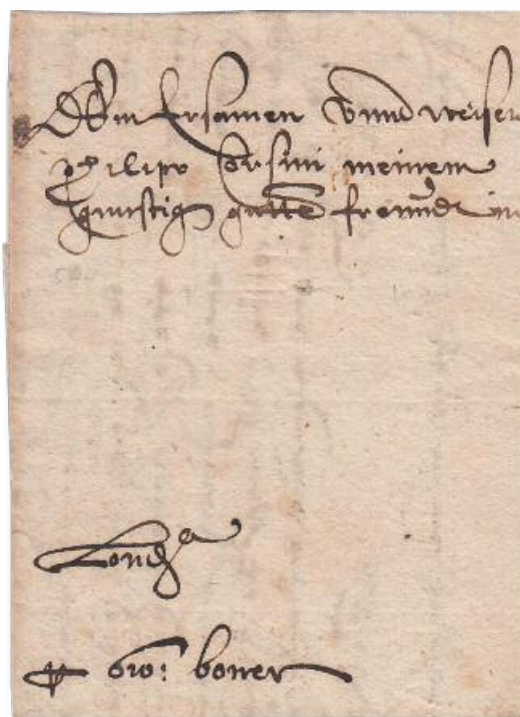 Dem Ersamen Vnnd weisen
philipo Corsini meinem
gunstig gutte freundt in
Londra
p gio: boner